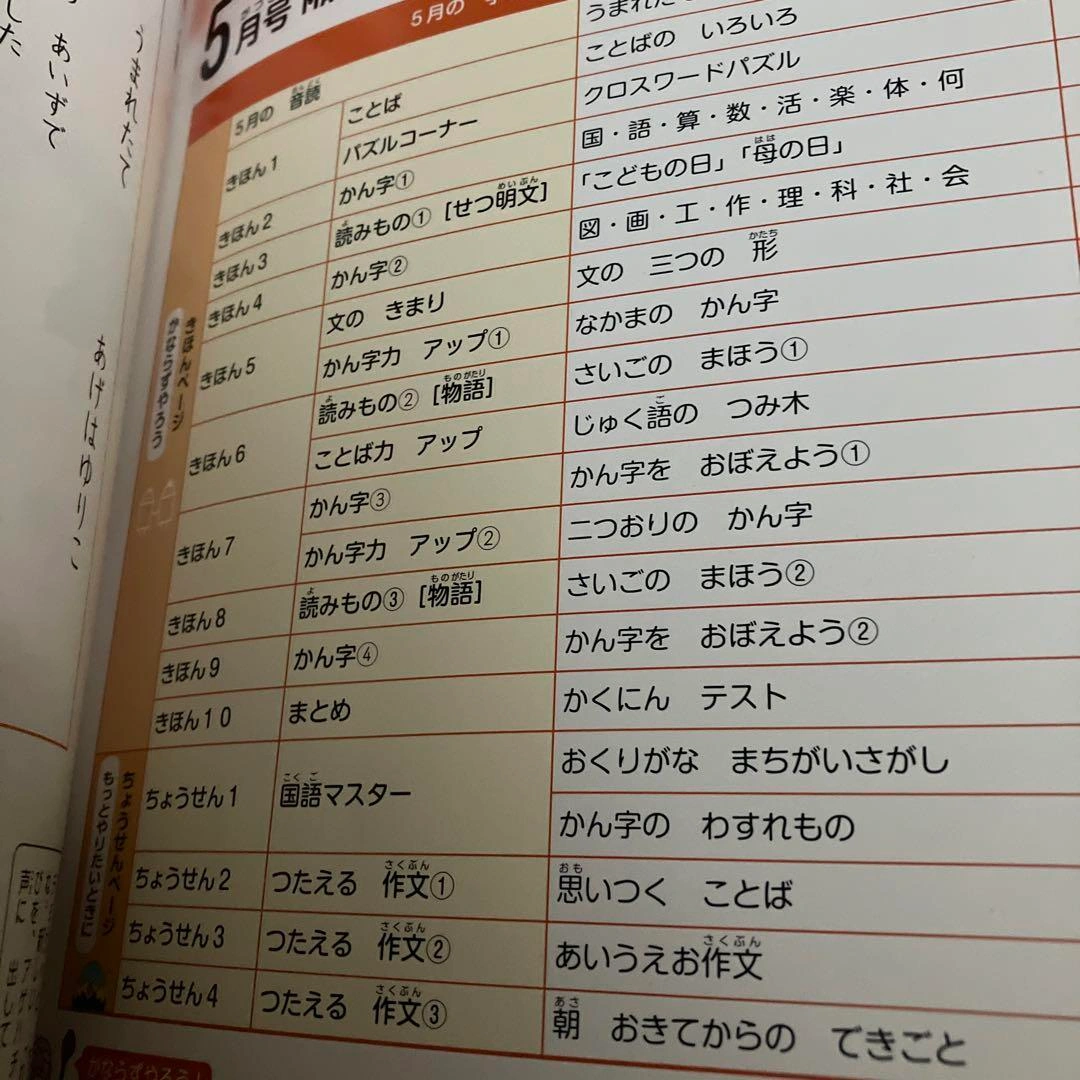 した
あいずで
うまれたて
あげはゆりこ
5月号
5月の
5月の 音読 うまれた
きほん1 ことば ことばの いろいろ
パズルコーナー クロスワードパズル
きほん2 かん字① 国・語・算・数・活・楽・体・何
きほん3 読みもの① [せつ明文] 「こどもの日」「母の日」
きほん4 かん字② 図・画・工・作・理・科・社・会
きほん5 文の きまり 文の 三つの 形
かん字力 アップ① なかまの かん字
きほん6 読みもの② [物語] さいごの まほう①
ことば力 アップ じゅく語の つみ木
きほん7 かん字③ かん字を おぼえよう①
かん字力 アップ② 二つおりの かん字
きほん8 読みもの③ [物語] さいごの まほう②
きほん9 かん字④ かん字を おぼえよう②
きほん10 まとめ かくにん テスト
きほんページ
かならずやろう
ちょうせん1 国語マスター おくりがな まちがいさがし
かん字の わすれもの
ちょうせん2 つたえる 作文① 思いつく ことば
ちょうせん3 つたえる 作文② あいうえお作文
ちょうせん4 つたえる 作文③ 朝 おきてからの できごと
ちょうせんページ
もっとやりたいときに
声に 出して
かならずやろう!